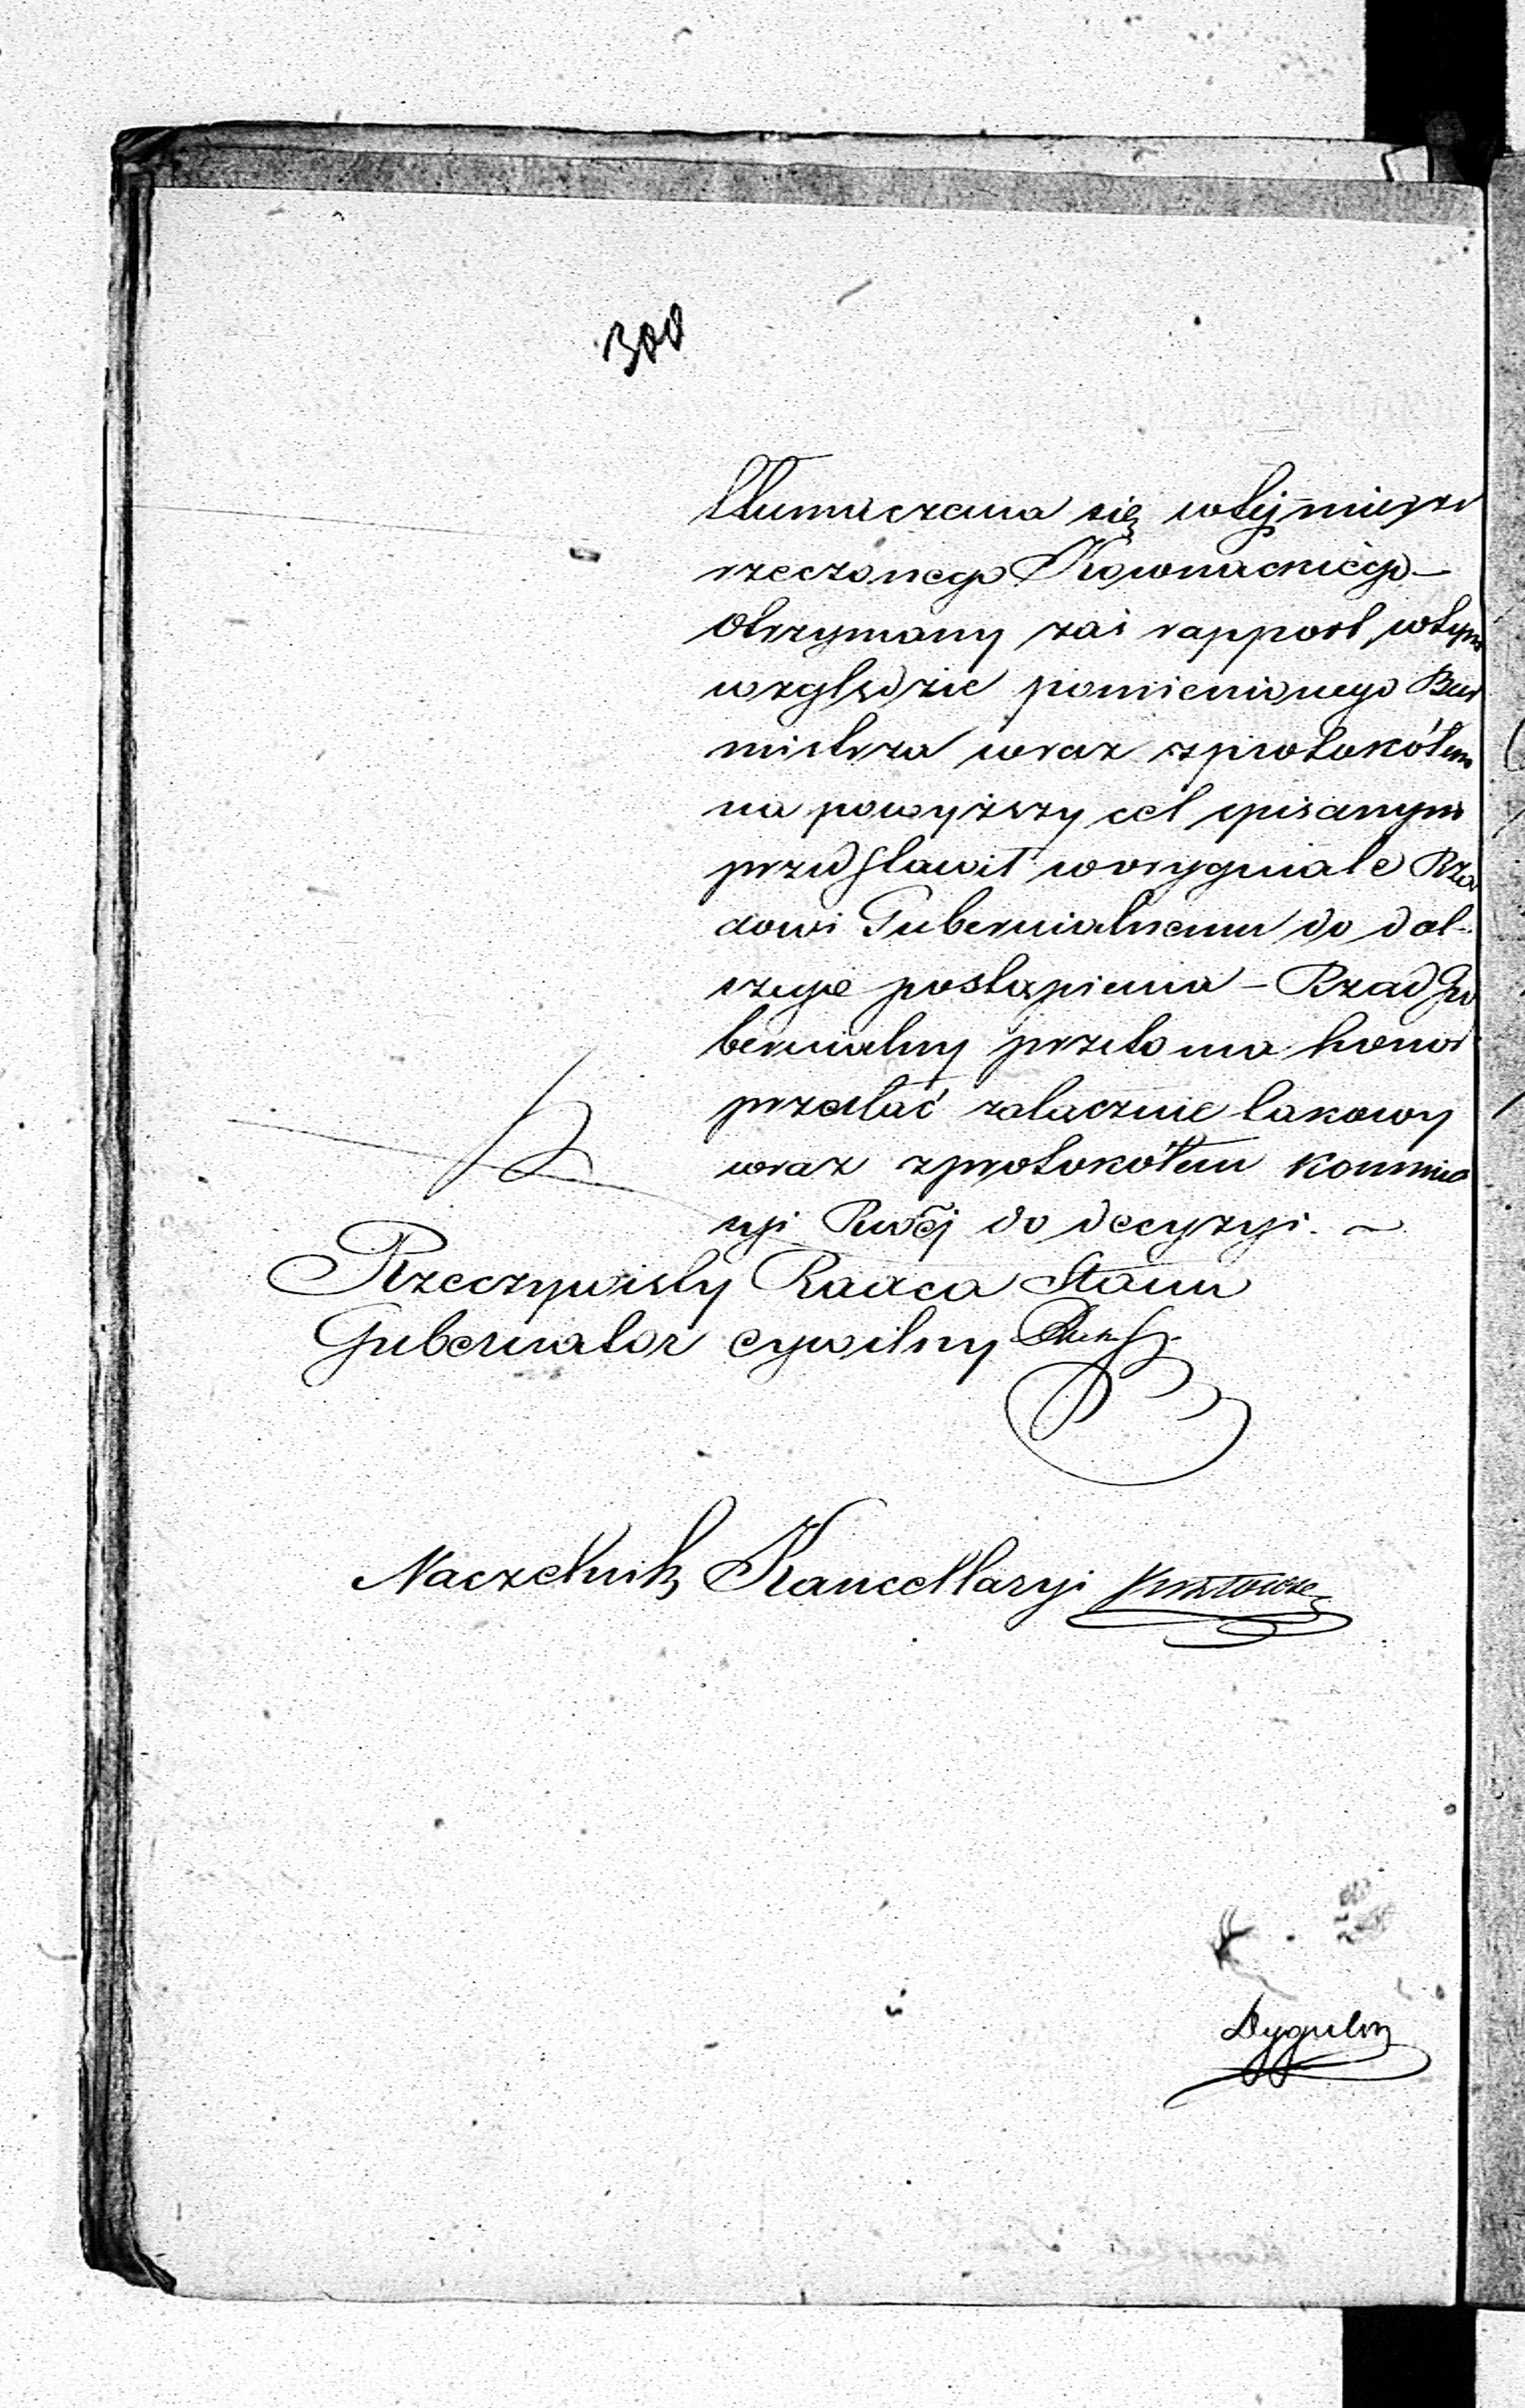 300
tłumaczenia się w tej mierze
rzeczonego Kownackiego –
Otrzymany zaś rapport w tym
względzie pomienionego Bur
mistrza wraz z protokółem
na powyższy cel spisanym
przedstawił w oryginale Rzą
dowi Gubernialnemu do dal-
szego postąpienia – Rząd Gu
bernialny przeto ma honor
przesłać załącznie takowy
wraz z protokółem Kommis
syi Rwej do decyzyi. –
Rzeczywisty Radca Stanu
Gubernator cywilny
Naczelnik Kancellaryi